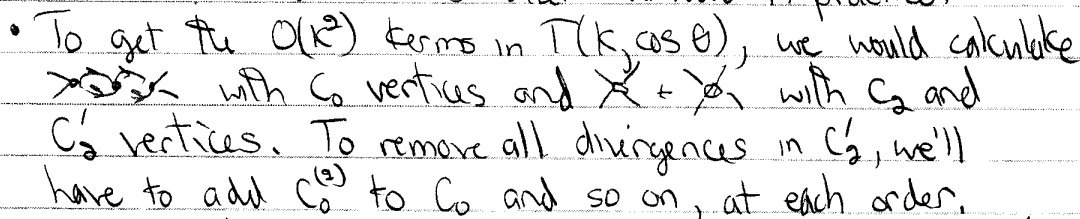 • To get the O(k²) terms in T(k, cos θ), we would calculate
with C₀ vertices and + with C₂ and
C₂' vertices. To remove all divergences in C₂', we'll
have to add C₀⁽²⁾ to C₀ and so on, at each order.